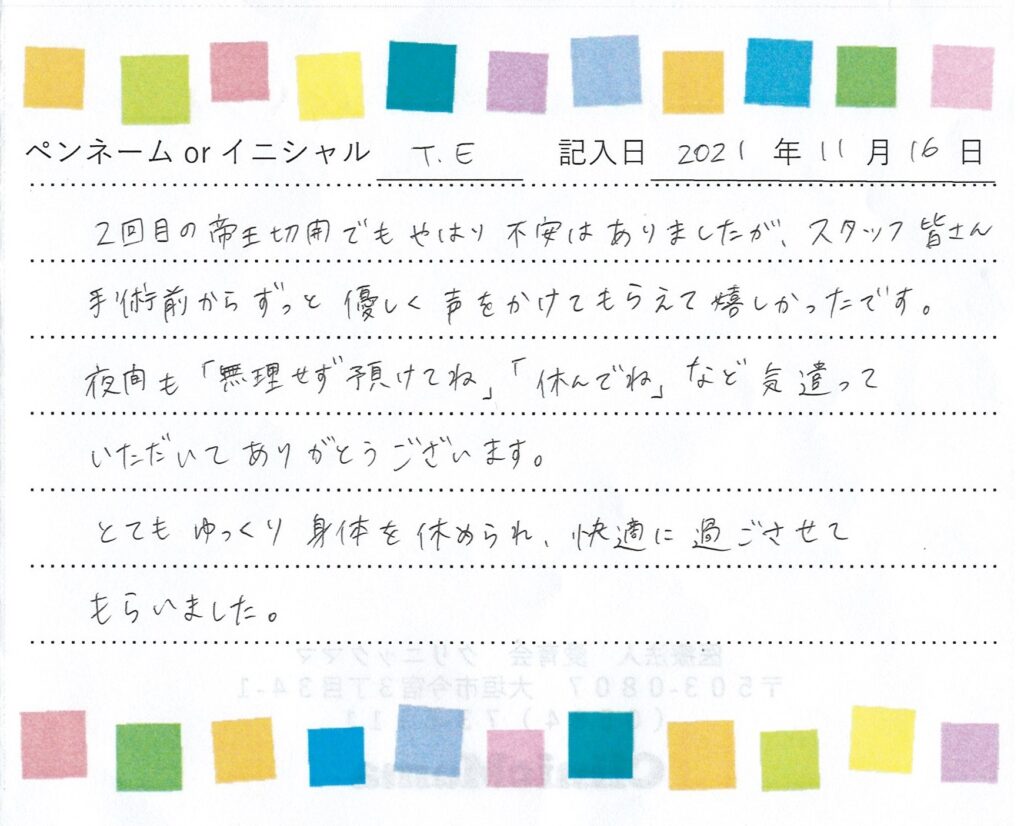 ペンネーム or イニシャル T.E 記入日 2021 年 11 月 16 日
2回目の帝王切開でもやはり不安はありましたが、スタッフ皆さん
手術前からずっと優しく声をかけてもらえて嬉しかったです。
夜間も「無理せず預けてね」「休んでね」など気遣って
いただいてありがとうございます。
とてもゆっくり身体を休められ、快適に過ごさせて
もらいました。
医療法人 愛育会 クリニックママ
〒503-0807 大垣市今宿3丁目34-1